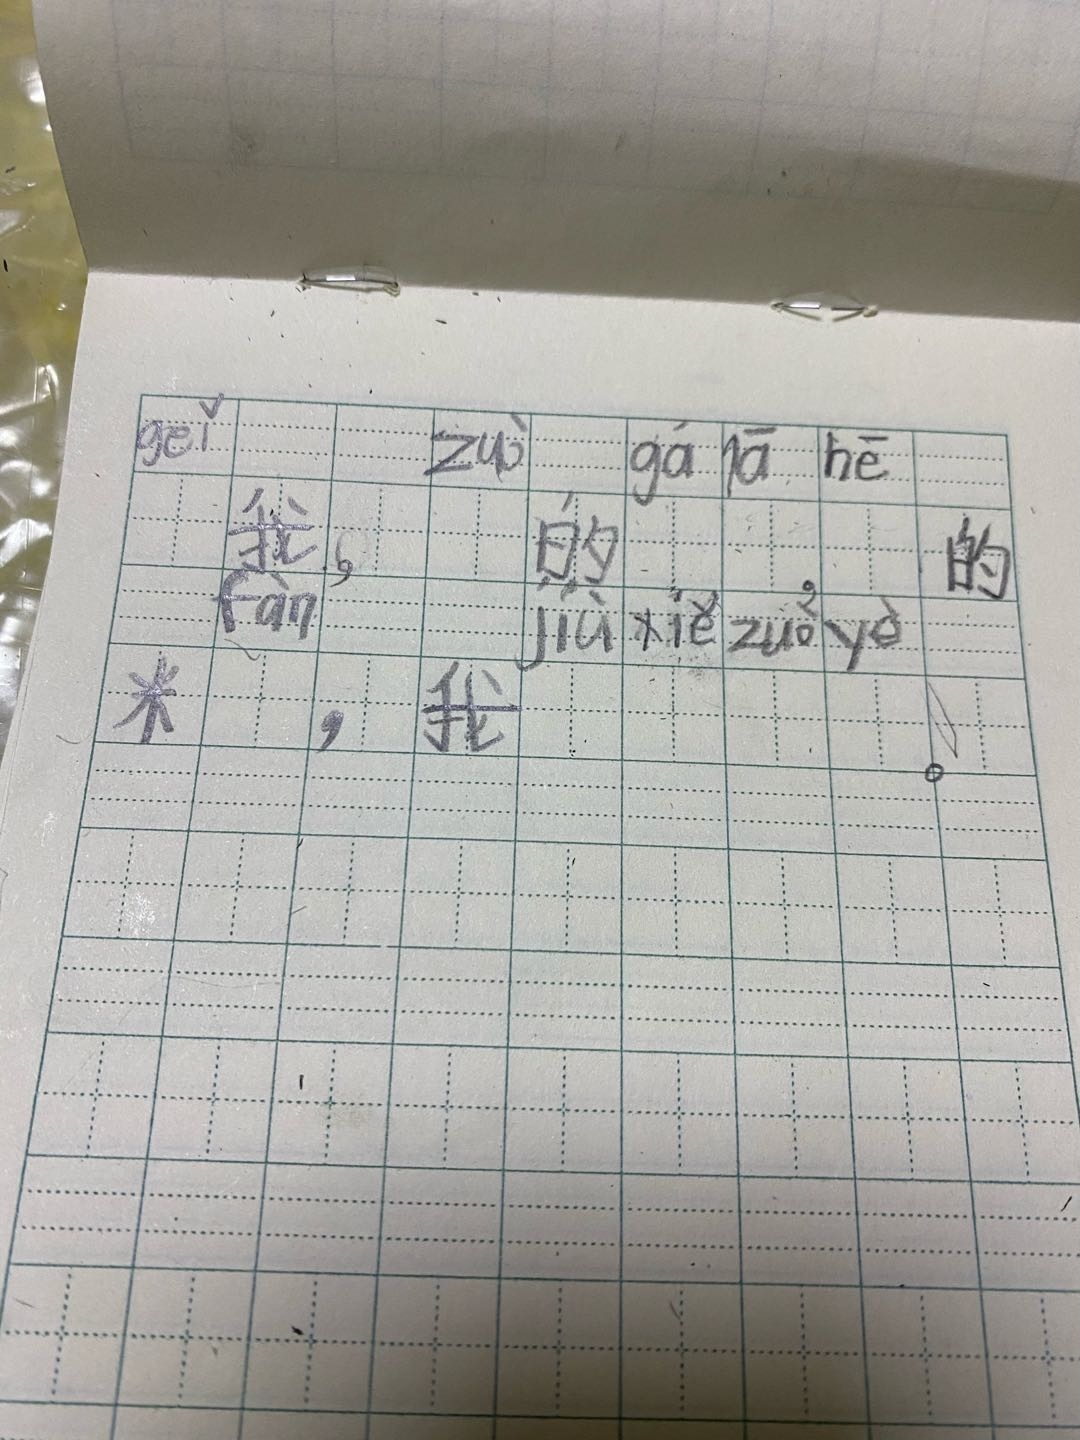 gěi zuò gá lā hē
我, 的 的
fàn jiù xiě zuǒ yè
米 , 我 。